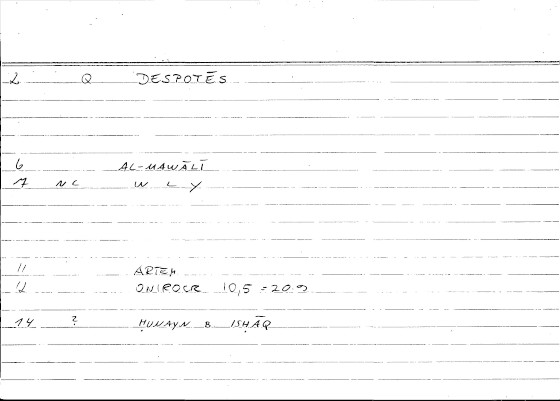 2 Q DESPOTĒS
6 AL-MAWĀLĪ
7 NC W L Y
11 ARTEM
12 ONIROCR 10,5 = 20.9
14 ? ḤUNAYN B ISḤĀQ